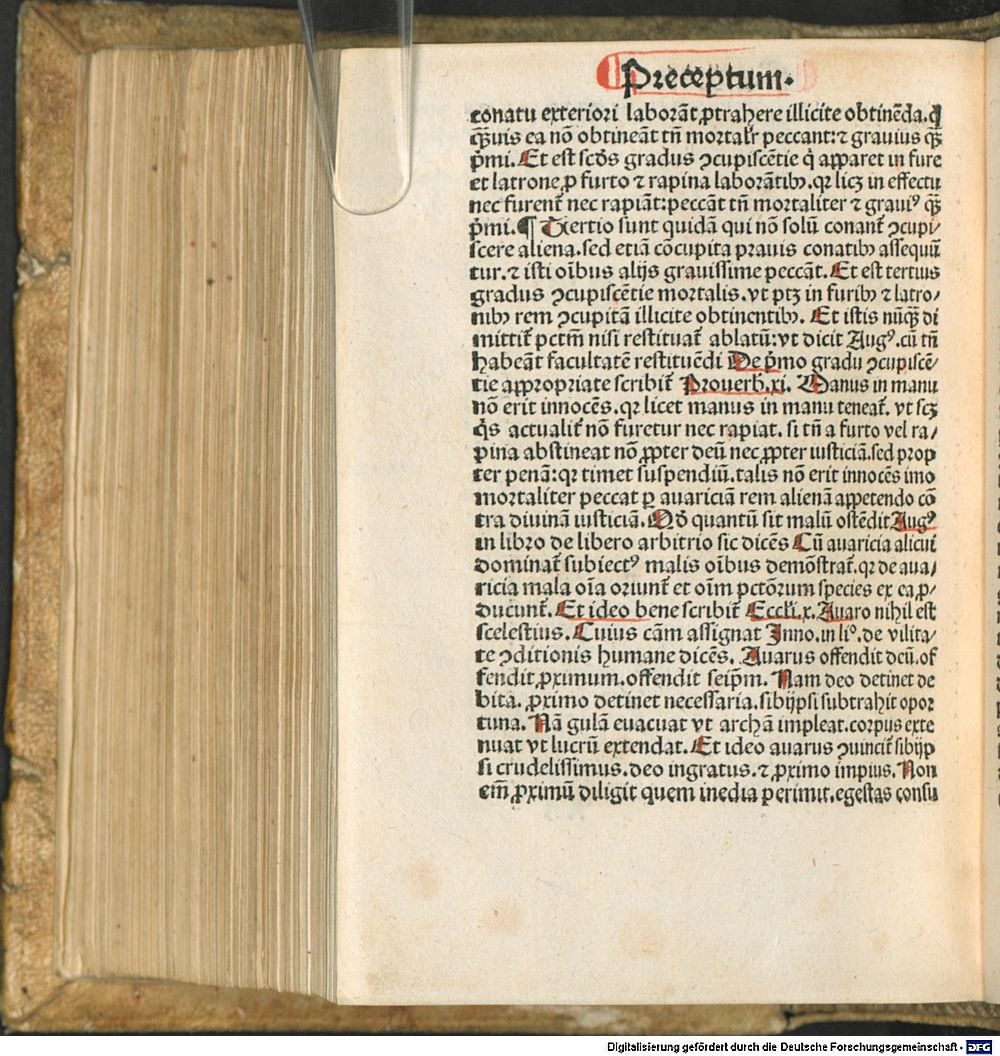 Preceptum.
conatu exteriori laborāt ꝓtrahere illicite obtinēda. ꝙ
q̄ꝫuis ea nō obtineāt tn̄ mortalr̄ peccant: ⁊ grauius q̄ꝫ
p̄mi. Et est scd̄s gradus ꝯcupiscētie q̇ apparet in fure
et latrone ꝓ furto ⁊ rapina laborātibꝰ. qꝛ licꝫ in effectu
nec furent̄ nec rapiāt: peccāt tn̄ mortaliter ⁊ grauiꝰ q̄ꝫ
p̄mi. ¶ Tertio sunt quidā qui nō solū conant̄ ꝯcupi/
scere aliena. sed etiā cōcupita prauis conatibꝰ assequū
tur. ⁊ isti oībus alijs grauissime peccāt. Et est tertius
gradus ꝯcupiscētie mortalis. vt ptꝫ in furibꝰ ⁊ latro/
nibꝰ rem ꝯcupitā illicite obtinentibꝰ. Et istis nūq̄ꝫ di
mittit̄ pctm̄ nisi restituat̄ ablatū: vt dicit Augꝰ. cū tn̄
habeāt facultatē restituēdi De p̄mo gradu ꝯcupiscē/
tie appropriate scribit̄ Prouerb̄. xi. Manus in manu
nō erit innocēs. qꝛ licet manus in manu teneat̄. vt scꝫ
q̇s actualit̄ nō furetur nec rapiat. si tn̄ a furto vel ra/
pina abstineat nō ꝓpter deū nec ꝓpter iusticiā. sed prop
ter penā: qꝛ timet suspendiū. talis nō erit innocēs imo
mortaliter peccat ꝑ auariciā rem alienā appetendo cō
tra diuinā iusticiā. Qd̄ quantū sit malū ostēdit Augꝰ
in libro de libero arbitrio sic dicēs Cū auaricia alicui
dominat̄ subiectꝰ malis oībus demōstrat̄. qꝛ de aua/
ricia mala oīa oriunt̄ et oīm pctōrum species ex ea ꝓ/
ducunt̄. Et ideo bene scribit̄ Eccli. x. Auaro nihil est
scelestius. Cuius cām assignat Inno. in liº. de vilita/
te ꝯditionis humane dicēs. Auarus offendit deū. of
fendit ꝓximum. offendit seip̄m. Nam deo detinet de
bita. ꝓximo detinet necessaria. sibijpsi subtrahit opor
tuna. Nā gulā euacuat vt archā impleat. corpus exte
nuat vt lucrū extendat. Et ideo auarus ꝯuincit̄ sibijp
si crudelissimus. deo ingratus. ⁊ ꝓximo impius. Non
em̄ ꝓximū diligit quem inedia perimit. egestas consu
Digitalisierung gefördert durch die Deutsche Forschungsgemeinschaft - DFG